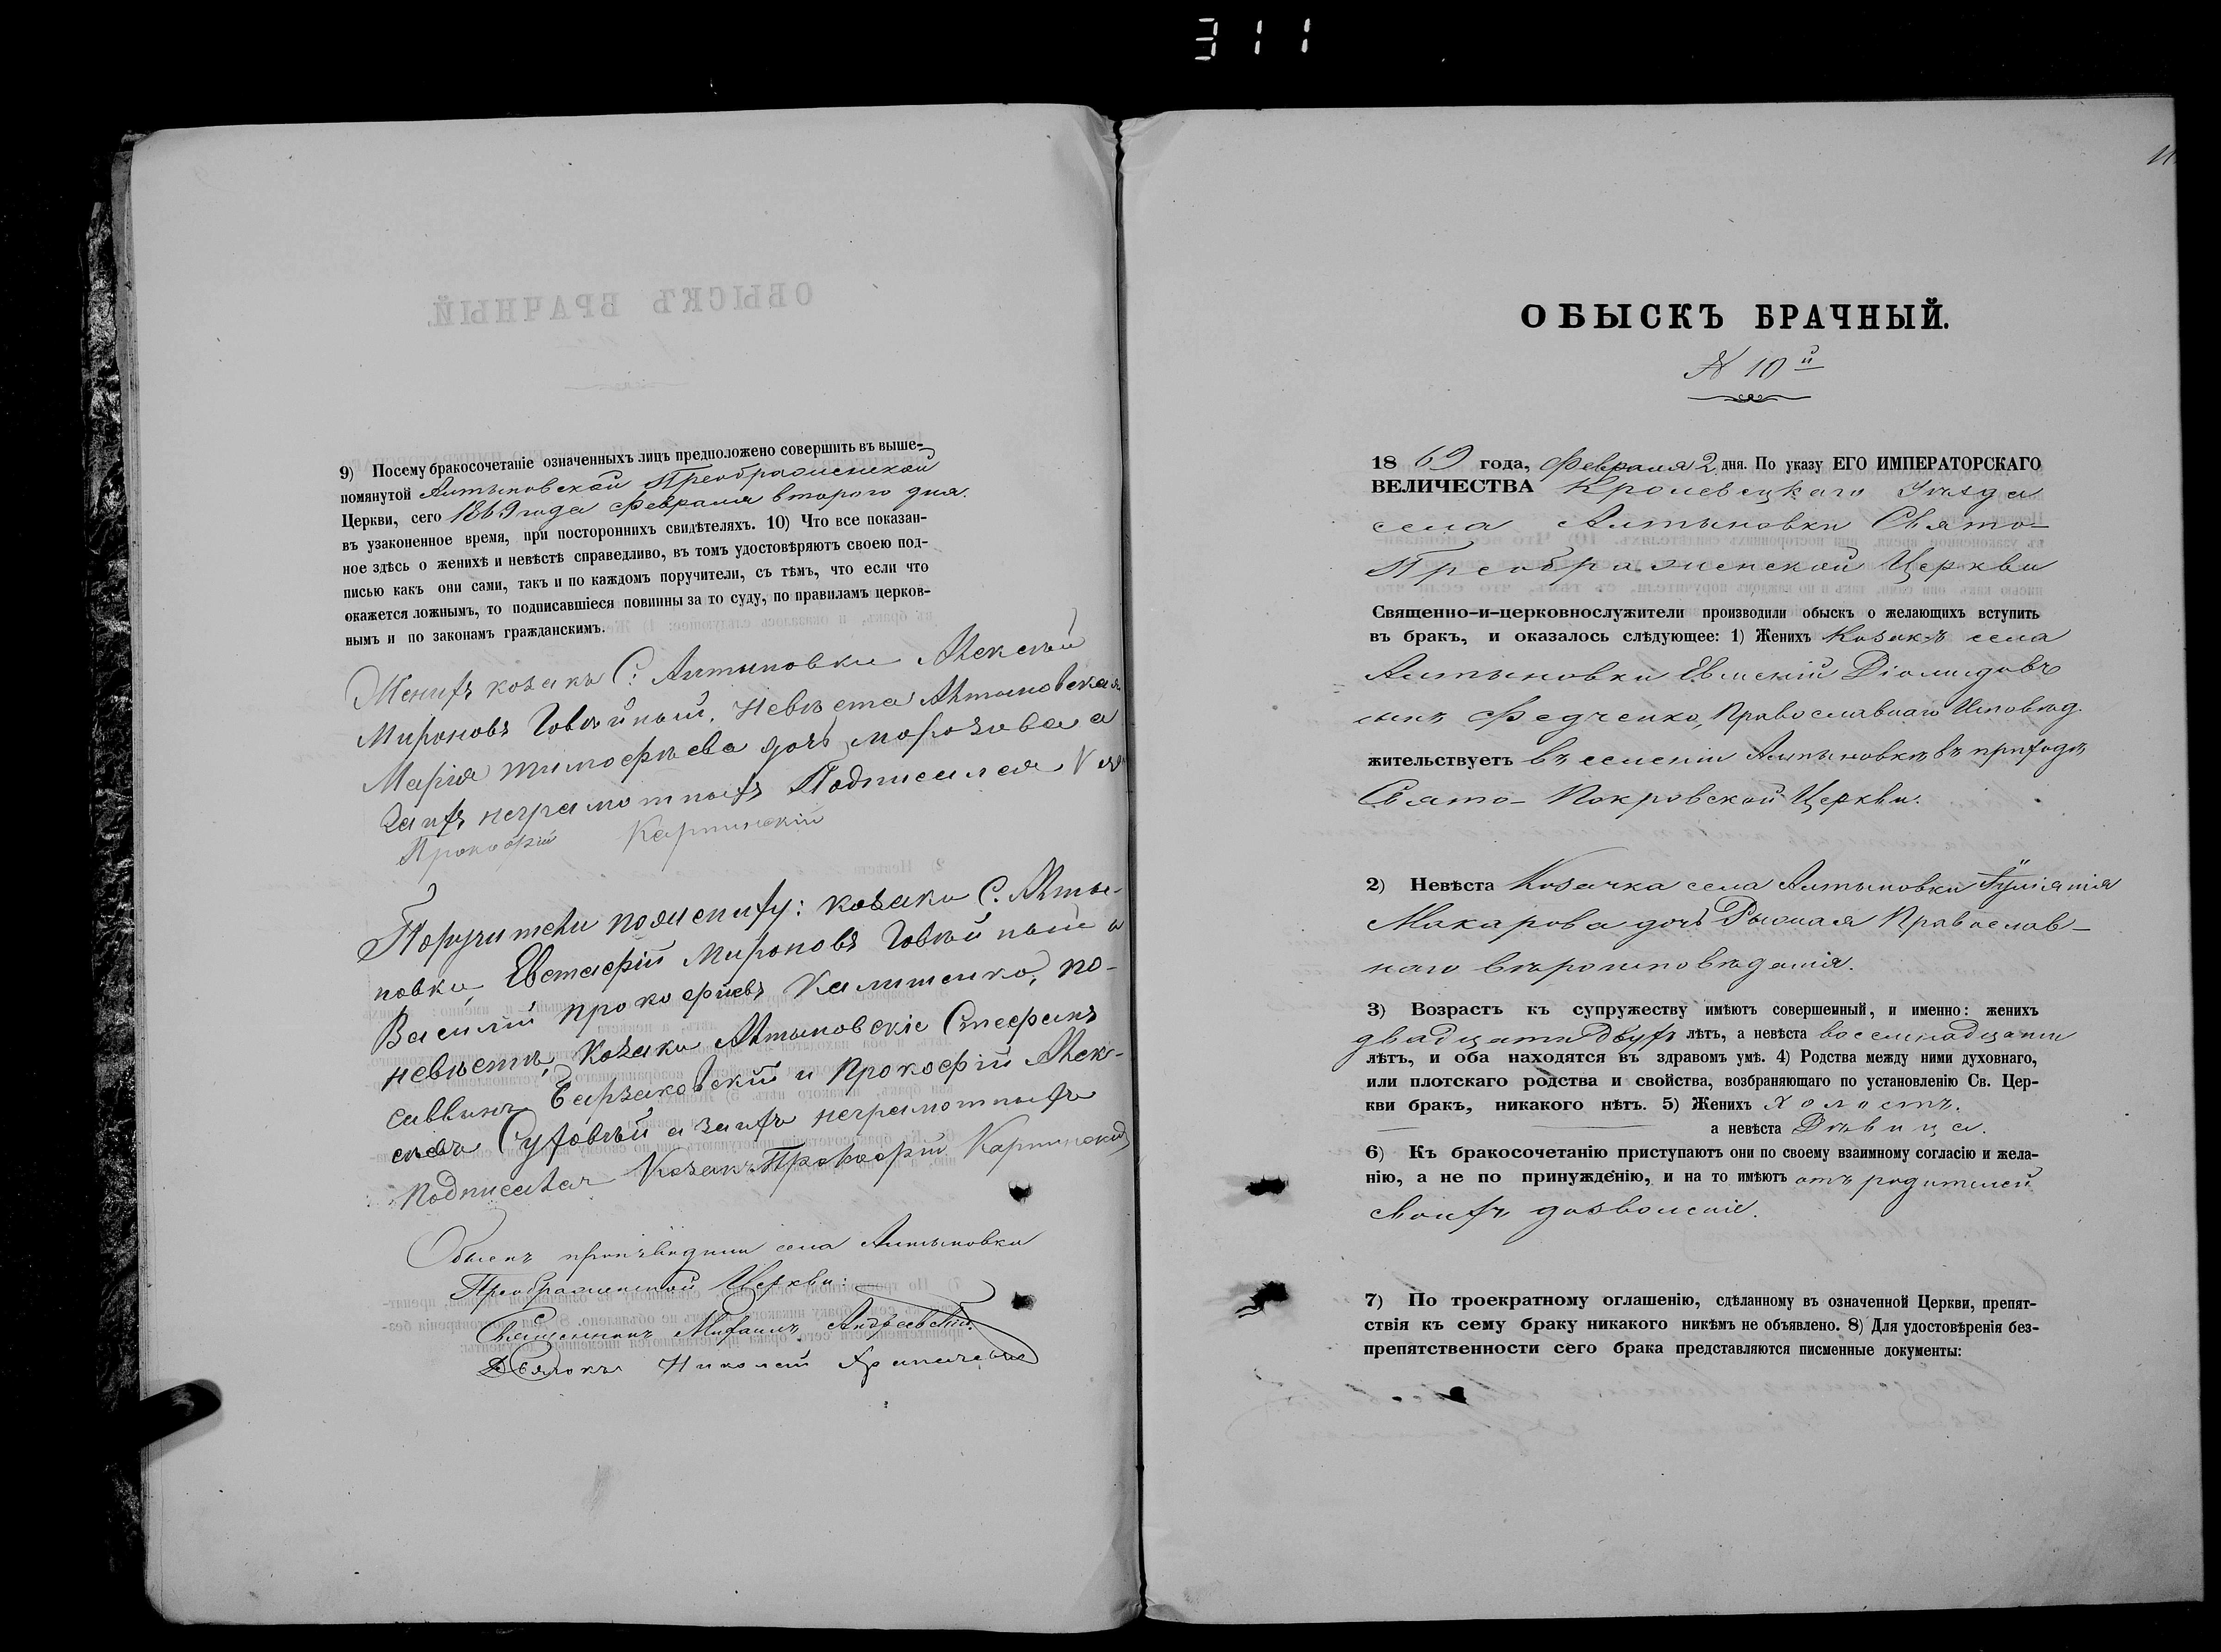 311
9) Посему бракосочетаніе означенныхъ лицъ предположено совершить въ выше-
помянутой Алтыновской Преображенской
Церкви, сего 1869 года февраля втораго дня.
въ узаконенное время, при постороннихъ свидѣтеляхъ. 10) Что все показан-
ное здѣсь о женихѣ и невѣстѣ справедливо, въ томъ удостовѣряютъ своею под-
писью какъ они сами, такъ и по каждомъ поручители, съ тѣмъ, что если что
окажется ложнымъ, то подписавшіеся повинны за то суду, по правиламъ церков-
нымъ и по законамъ гражданскимъ.
Женихъ козакъ С: Алтыновки Алексѣй
Мироновъ Говѣйный, Невѣста Алтыновская
Марія тимофѣева дочь морозова а
За ихъ неграмотныхъ Подписался
Прокофій Карпинскій
Поручители пожениху: козаки С. Алты-
новки, Евстафій Мироновъ Говѣйный и
Василій прокофіевъ Калишенко, по-
невѣстѣ, Козаки Алтыновскіе Стефанъ
саввинъ Барзаковскій и Прокофій Алек-
сѣевъ Суховѣй а за ихъ неграмотныхъ
Подписался Козакъ Прокофій Карпинскій
Обыскъ производили села Алтыновки
Преображенской Церкви:
Священникъ Михаилъ Андреевскій
Дьячокъ Николай
ОБЫСКЪ БРАЧНЫЙ.
N 10й
1869 года, февраля 2 дня. По указу ЕГО ИМПЕРАТОРСКАГО
ВЕЛИЧЕСТВА Кролевецкаго Уѣзда
села Алтыновки Свято-
Преображенской Церкви
Священно-и-церковнослужители производили обыскъ о желающихъ вступить
въ бракъ, и оказалось слѣдующее: 1) Женихъ Козакъ села
Алтыновки Евмѣній Діомидовъ
сынъ Федченко, Православнаго Исповѣд.
жительствуетъ въ селеніи Алтыновкѣ въ приходѣ
Свято-Покровской Церкви.
2) Невѣста Козачка села Алтыновки Іуліанія
Макарова дочь Рыжая Православ-
наго вѣроисповѣданія.
3) Возрастъ къ супружеству имѣютъ совершенный, и именно: женихъ
двадцати двухъ лѣтъ, а невѣста восемнадцати
лѣтъ, и оба находятся въ здравомъ умѣ. 4) Родства между ними духовнаго,
или плотскаго родства и свойства, возбраняющаго по установленію Св. Цер-
кви бракъ, никакого нѣтъ. 5) Женихъ холостъ.
а невѣста Дѣвица.
6) Къ бракосочетанію приступаютъ они по своему взаимному согласію и жела-
нію, а не по принужденію, и на то имѣютъ отъ родителей
своихъ дозволеніе.
7) По троекратному оглашенію, сдѣланному въ означенной Церкви, препят-
ствія къ сему браку никакого никѣмъ не объявлено. 8) Для удостовѣренія без-
препятственности сего брака представляются писменные документы: